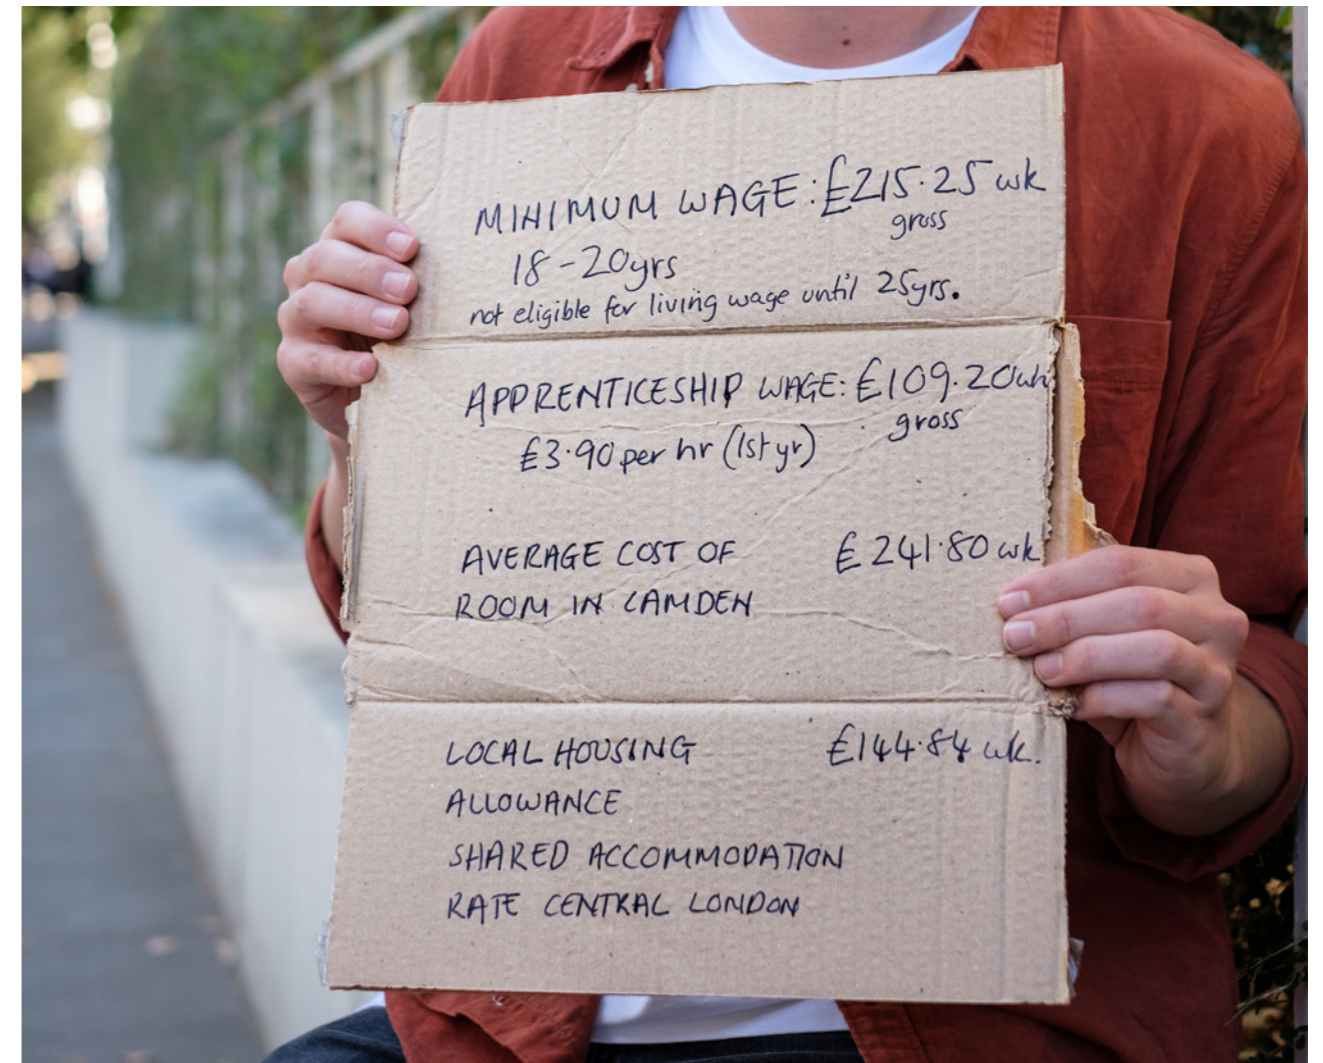 MINIMUM WAGE: £215.25 wk
gross
18-20yrs
not eligible for living wage until 25yrs.
APPRENTICESHIP WAGE: £109.20 wk
gross
£3.90 per hr (1st yr)
AVERAGE COST OF £241.80 wk
ROOM IN CAMDEN
LOCAL HOUSING £144.84 wk.
ALLOWANCE
SHARED ACCOMMODATION
RATE CENTRAL LONDON